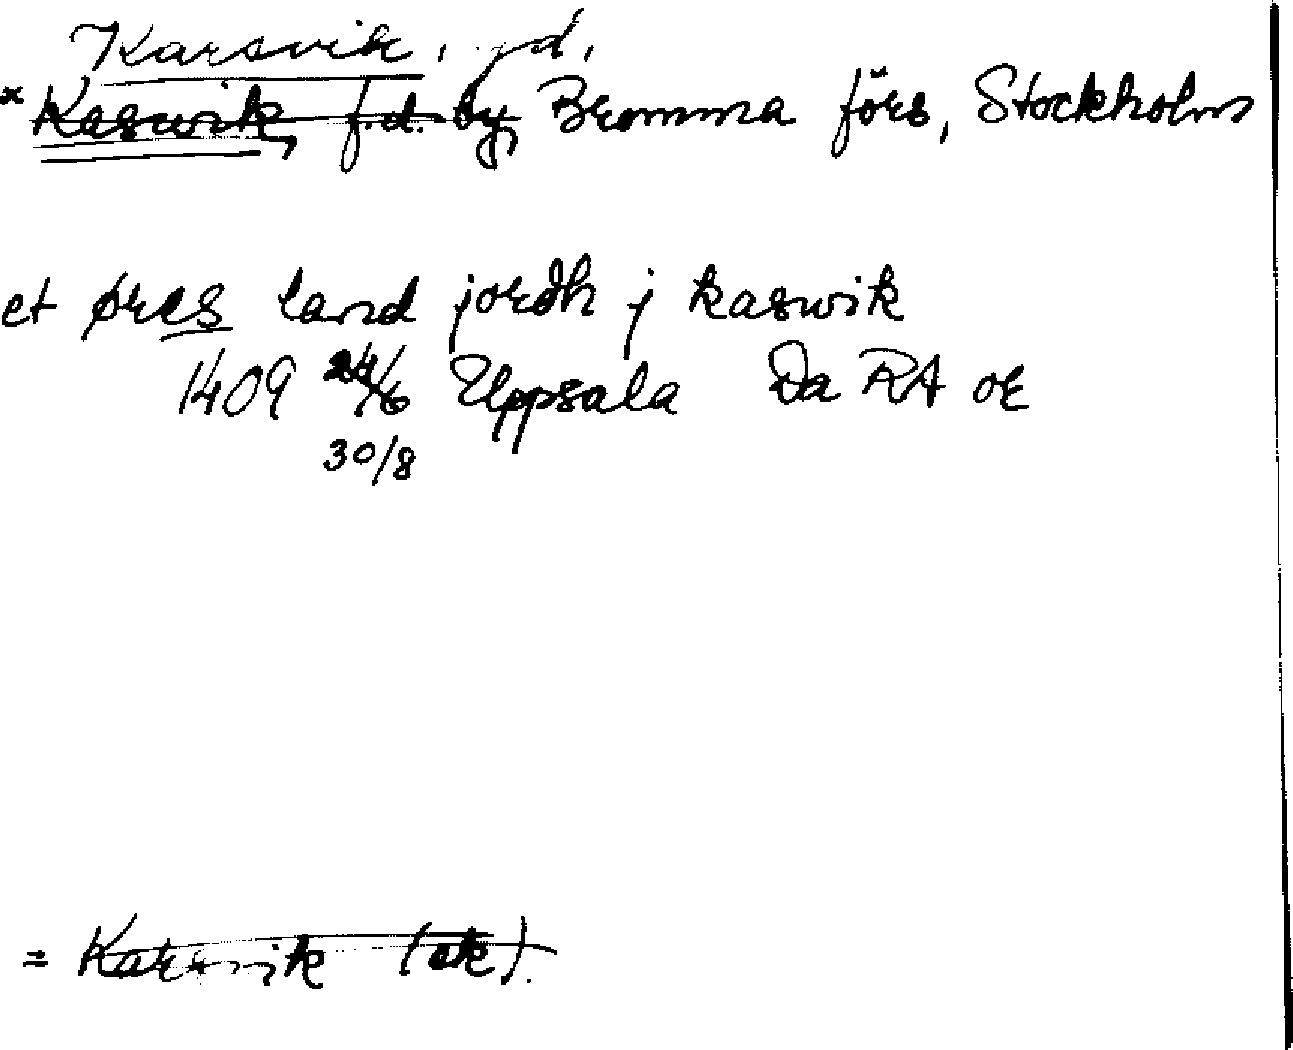 Karsvik, gd,
× Kaswik, f.d. by, Bromma förs, Stockholm
et øres land jordh j kaswik
1409 24/6 Uppsala Da RA or
30/8
= Karsvik (ak).